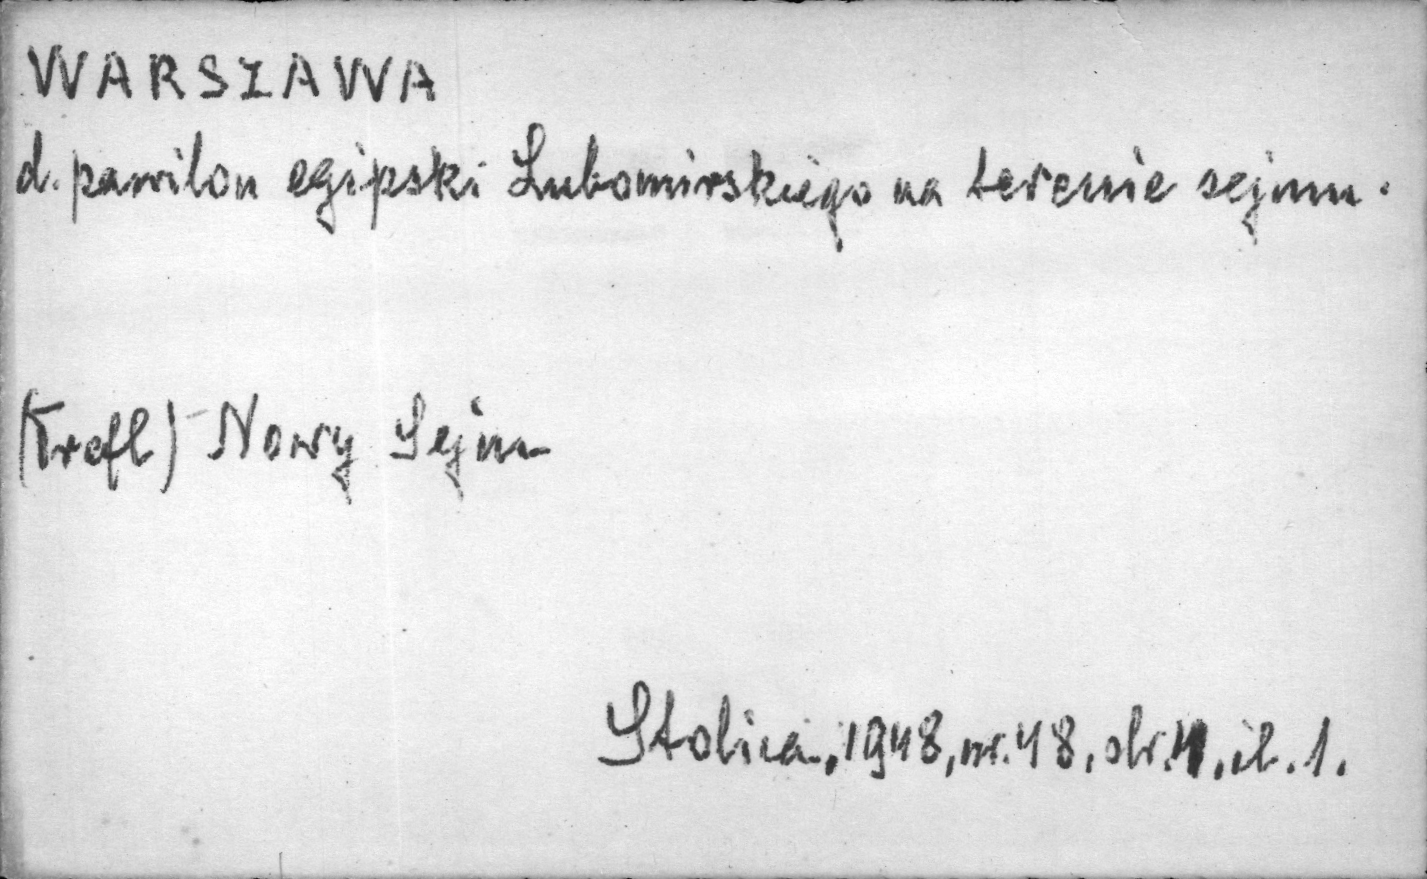 WARSZAWA
d. pawilon egipski Lubomirskiego na terenie sejmu.
(Krefl) Nowy Sejm
Stolica, 1948, nr. 48, str. 4, il. 1.